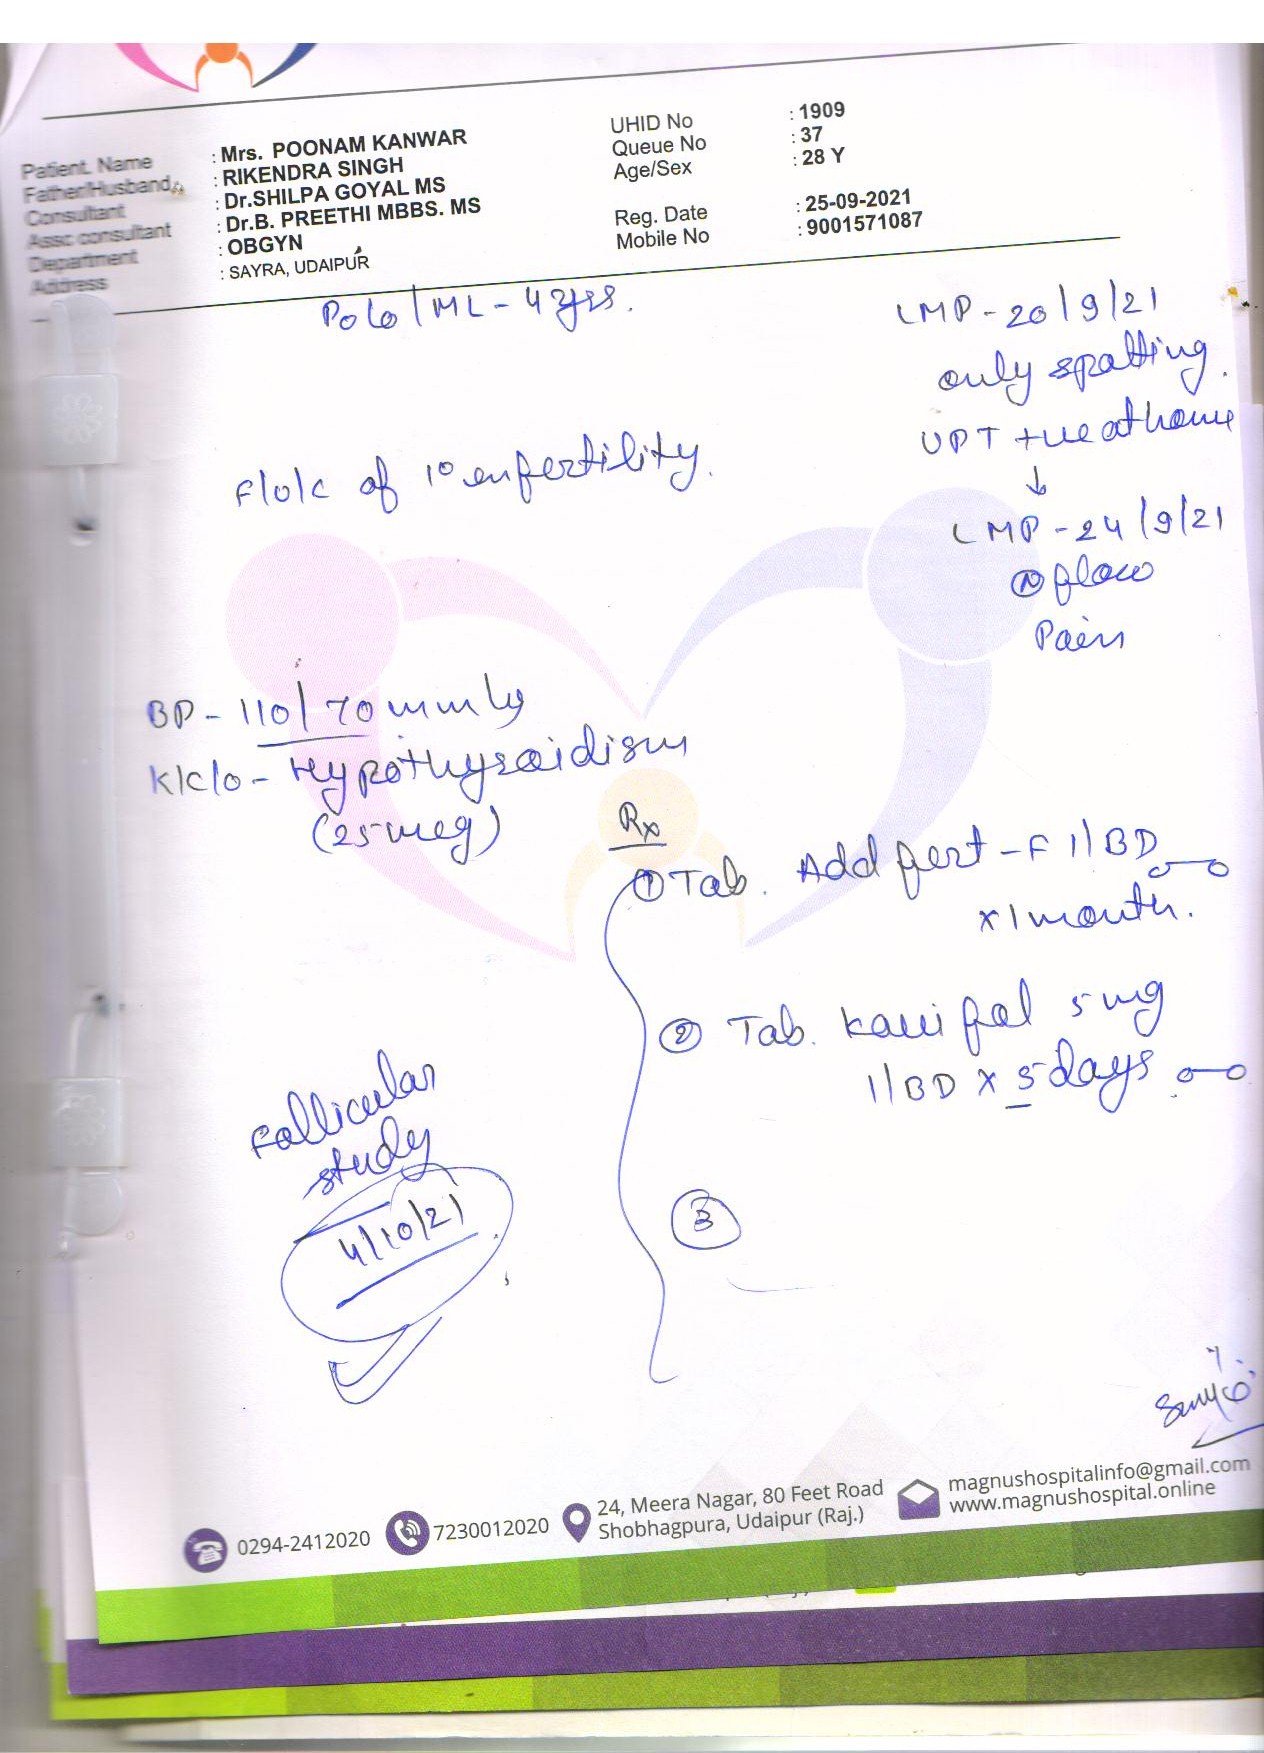 Patient. Name : Mrs. POONAM KANWAR
Father/Husband : RIKENDRA SINGH
Consultant : Dr.SHILPA GOYAL MS
Assc consultant : Dr.B. PREETHI MBBS. MS
Department : OBGYN
Address : SAYRA, UDAIPUR
UHID No : 1909
Queue No : 37
Age/Sex : 28 Y
Reg. Date : 25-09-2021
Mobile No : 9001571087
PoLo / ML - 4 yrs.
LMP - 20/9/21
only spotting.
UPT +ve at home
↓
LMP - 24/9/21
Ⓝ flow
Pain
F/o/c of 1° infertility.
BP - 110/70 mmHg
K/c/o - Hypothyroidism
(25 mcg)
Rx
① Tab. Addfert-F 1/BD
x 1 month.
② Tab. 5 mg
1/BD x 5 days
③
Follicular
study
4/10/21
0294-2412020
7230012020
24, Meera Nagar, 80 Feet Road
Shobhagpura, Udaipur (Raj.)
magnushospitalinfo@gmail.com
www.magnushospital.online